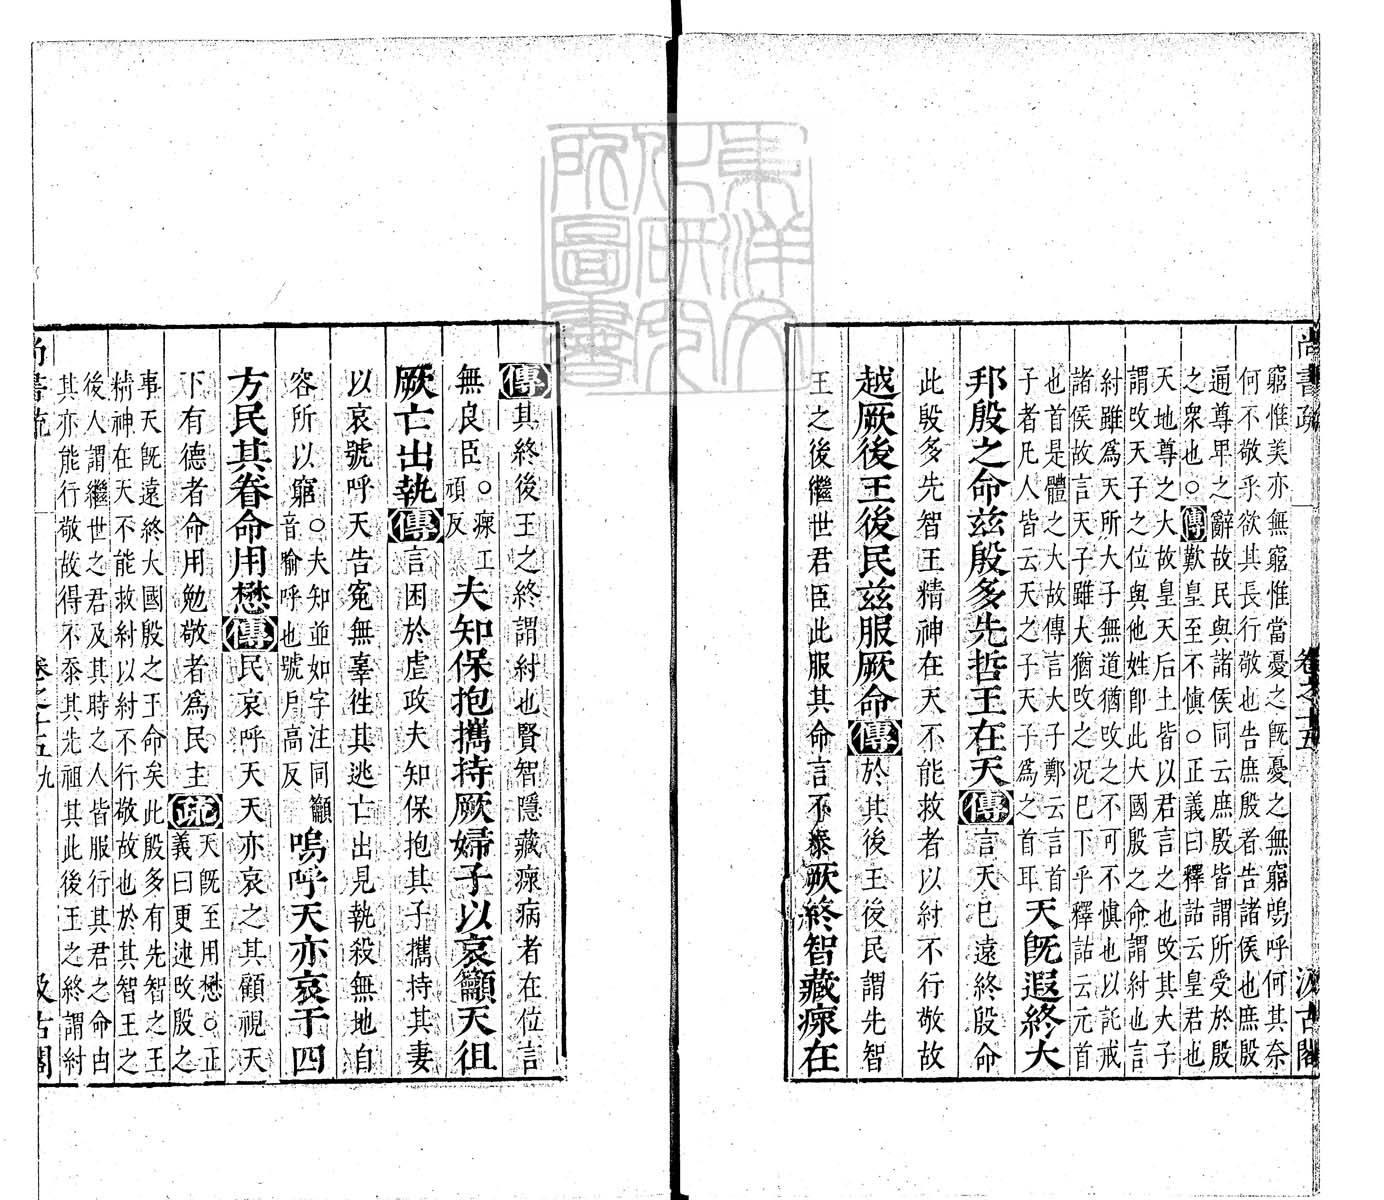 尚書疏
卷之十五
汲古閣
窮惟美亦無窮惟當憂之旣憂之無窮嗚呼何其奈
何不敬乎欲其長行敬也告庶殷者告諸侯也庶殷
遍尊卑之辭故民與諸侯同云庶殷皆謂所受於殷
之衆也○傳歎皇至不慎○正義曰釋詁云皇君也
天地尊之大故皇天后土皆以君言之也攺其大子
謂攺天子之位與他姓卽此大國殷之命謂紂也言
紂雖爲天所大子無道猶攺之不可不慎也以託戒
諸侯故言天子雖大猶攺之况已下乎釋詁云元首
也首是體之大故傳言大子鄭云言首
子者凡人皆云天之子天子爲之首耳
天旣遐終大
邦殷之命茲殷多先哲王在天傳言天已遠終殷命
此殷多先智王精神在天不能救者以紂不行敬故
越厥後王後民茲服厥命傳於其後王後民謂先智
王之後繼世君臣此服其命言不忝厥終智藏瘝在
傳其終後王之終謂紂也賢智隱藏瘝病者在位言
無良臣○瘝工
頑反
夫知保抱攜持厥婦子以哀籲天徂
厥亡出執傳言困於虐政夫知保抱其子攜持其妻
以哀號呼天告寃無辜徃其逃亡出見執殺無地自
容所以窮○夫知並如字注同籲
音喻呼也號戶高反
嗚呼天亦哀于四
方民其眷命用懋傳民哀呼天天亦哀之其顧視天
下有德者命用勉敬者爲民主疏天旣至用懋○正
義曰更述攺殷之
事天旣遠終大國殷之王命矣此殷多有先智之王
精神在天不能救紂以紂不行敬故也於其智王之
後人謂繼世之君及其時之人皆服行其君之命由
其亦能行敬故得不忝其先祖其此後王之終謂紂
尚書疏
卷之十五
九
汲古閣
東洋文
化研究
所圖書